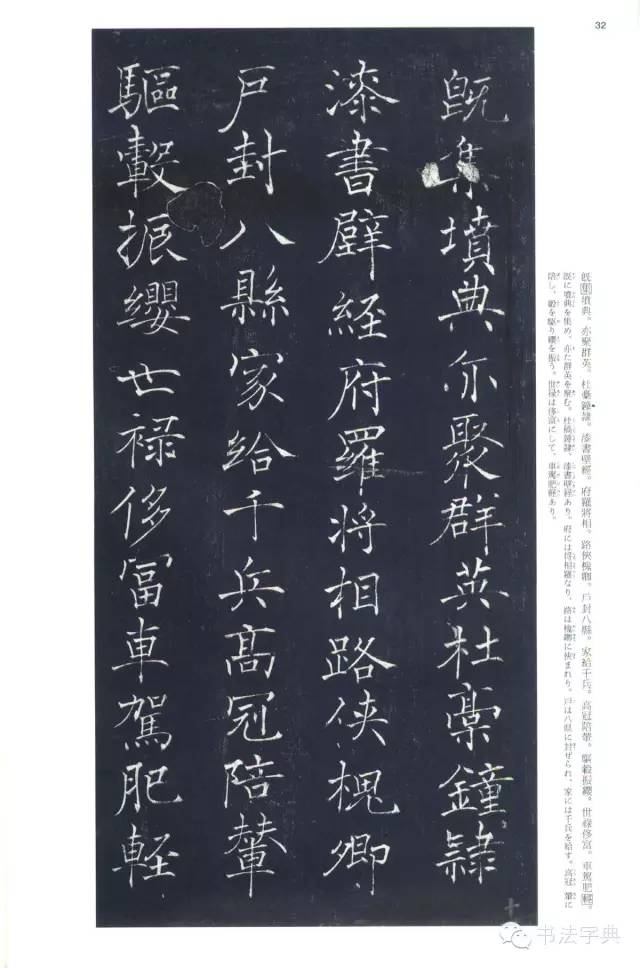 32
既集墳典亦聚群英杜稾鍾隸
漆書壁經府羅將相路俠槐卿
戶封八縣家給千兵高冠陪輦
驅轂振纓世祿侈富車駕肥輕
既集墳典。亦聚群英。杜稾鍾隷。漆書壁經。府羅將相。路俠槐卿。戶封八縣。家給千兵。高冠陪輦。驅轂振纓。世祿侈富。車駕肥輕。
既に墳典を集め、亦た群英を聚む。杜稿鍾隷、漆書壁経あり。府には将相羅なり、路は槐卿に俠まれり。戸は八県に封ぜられ、家には千兵を給す。高冠 輦に
陪し、轂を駆り纓を振う。世禄は侈富にして、車駕肥軽あり。
十
书法字典